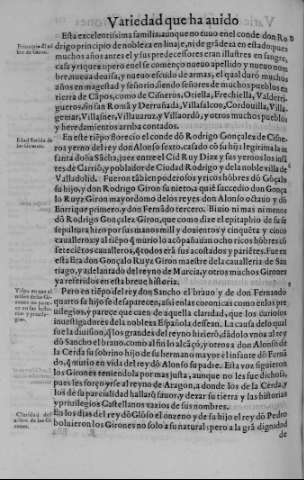 Variedad que ha auido
Esta excelentissima familia, aunque no tuuo en el conde don Ro-
drigo principio de nobleza en linaje, ni de grãdeza en estado: pues
muchos años antes el y sus predecessores eran illustres en sangre,
casa y riquezas: pero en el se començo nueuo apellido y nueuo no-
bre, nueua deuisa, y nueuo escudo de armas, el qual daró muchos
años en magestad y señorio, siendo señores de muchos pueblos en
tierra de Cãpos, como de Cisñeros, Oriella, Frechilla, Valde
gueros, san Romã y Derruñada, Villafalcos, Cordouilla, Villa
gemar, Villasñer, Villauaruz, y Villaordó, y otros muchos pueblos
y heredamientos arriba contados.
En este tiẽpo florecio el conde dõ Rodrigo Gonçales de Cisñe-
ros yerno del rey don Alonso sexto, casado cõ su hija legitima la in
fanta doña Sãcha, juez entre el Cid Ruy Diaz y sus yernos los infã
tes de Carriõ, y poblador de Ciudad Rodrigo y de la noble villa de
Valladolid. Fueron tãbien poderosos y ricos hõbres dõ Gõçalo
su hijo, y don Rodrigo Giron su nieto, a quiẽ succedio don Gonça
lo Ruyz Giron mayordomo de los reyes don Alonso octauo y dõ
Enrriq̃ primero, y don Fernãdo tercero. Biuio ni mas ni menos
dõ Rodrigo Gonçalez Giron, que como dize el epitaphio de su se
pultura hizo por sus manos mill y dozientos y cinquẽta y cinco
caualleros, y al tiẽpo q̃ murio lo acõpañauan ocho ricos hõbres cõ
setecietos caualleros, q̃ todos erã sus acostados y pariẽtes. Fue en
esta Era don Gonçalo Ruyz Giron maestre dela caualleria de San
tiago, y adelantado del reyno de Murcia, y otros muchos Girones
ya referidos en esta breue historia.
Pero en tiẽpo del rey don Sancho el brauo y de don Fernando
quarto su hijo se desaparecen, assi en las coronicas como en los pre
uilegios, y parece que caen de aquella claridad, que los curiosos
inuestigadores dela nobleza Española dessean. La causa delo qual
fue la diuisiõ, q̃ los grandes del reyno hizierõ, dãdo la voz a al rey
dõ Sancho el brauo, como al fin lo alcãçó, y otros a don Alonso de
la Cerda su sobrino hijo de su hermano mayor el infante dõ Fernã
do, q̃ murio en vida del rey dõ Alonso su padre. Esta voz siguieron
los Girones teniendola por mas justa, aunque no les fue dichosa,
pues les forço yrse al reyno de Aragon, a donde los de la Cerda, y
los de su parcialidad hallarõ fauor, y dexar su tierra y las historias
y priuilegios Castellanos vazios de sus nombres.
En los dias del rey dõ Alõso el onzeno y de su hijo el rey dõ Pedro
boluieron los Girones no solo a su natural: pero a la grã dignidad
de